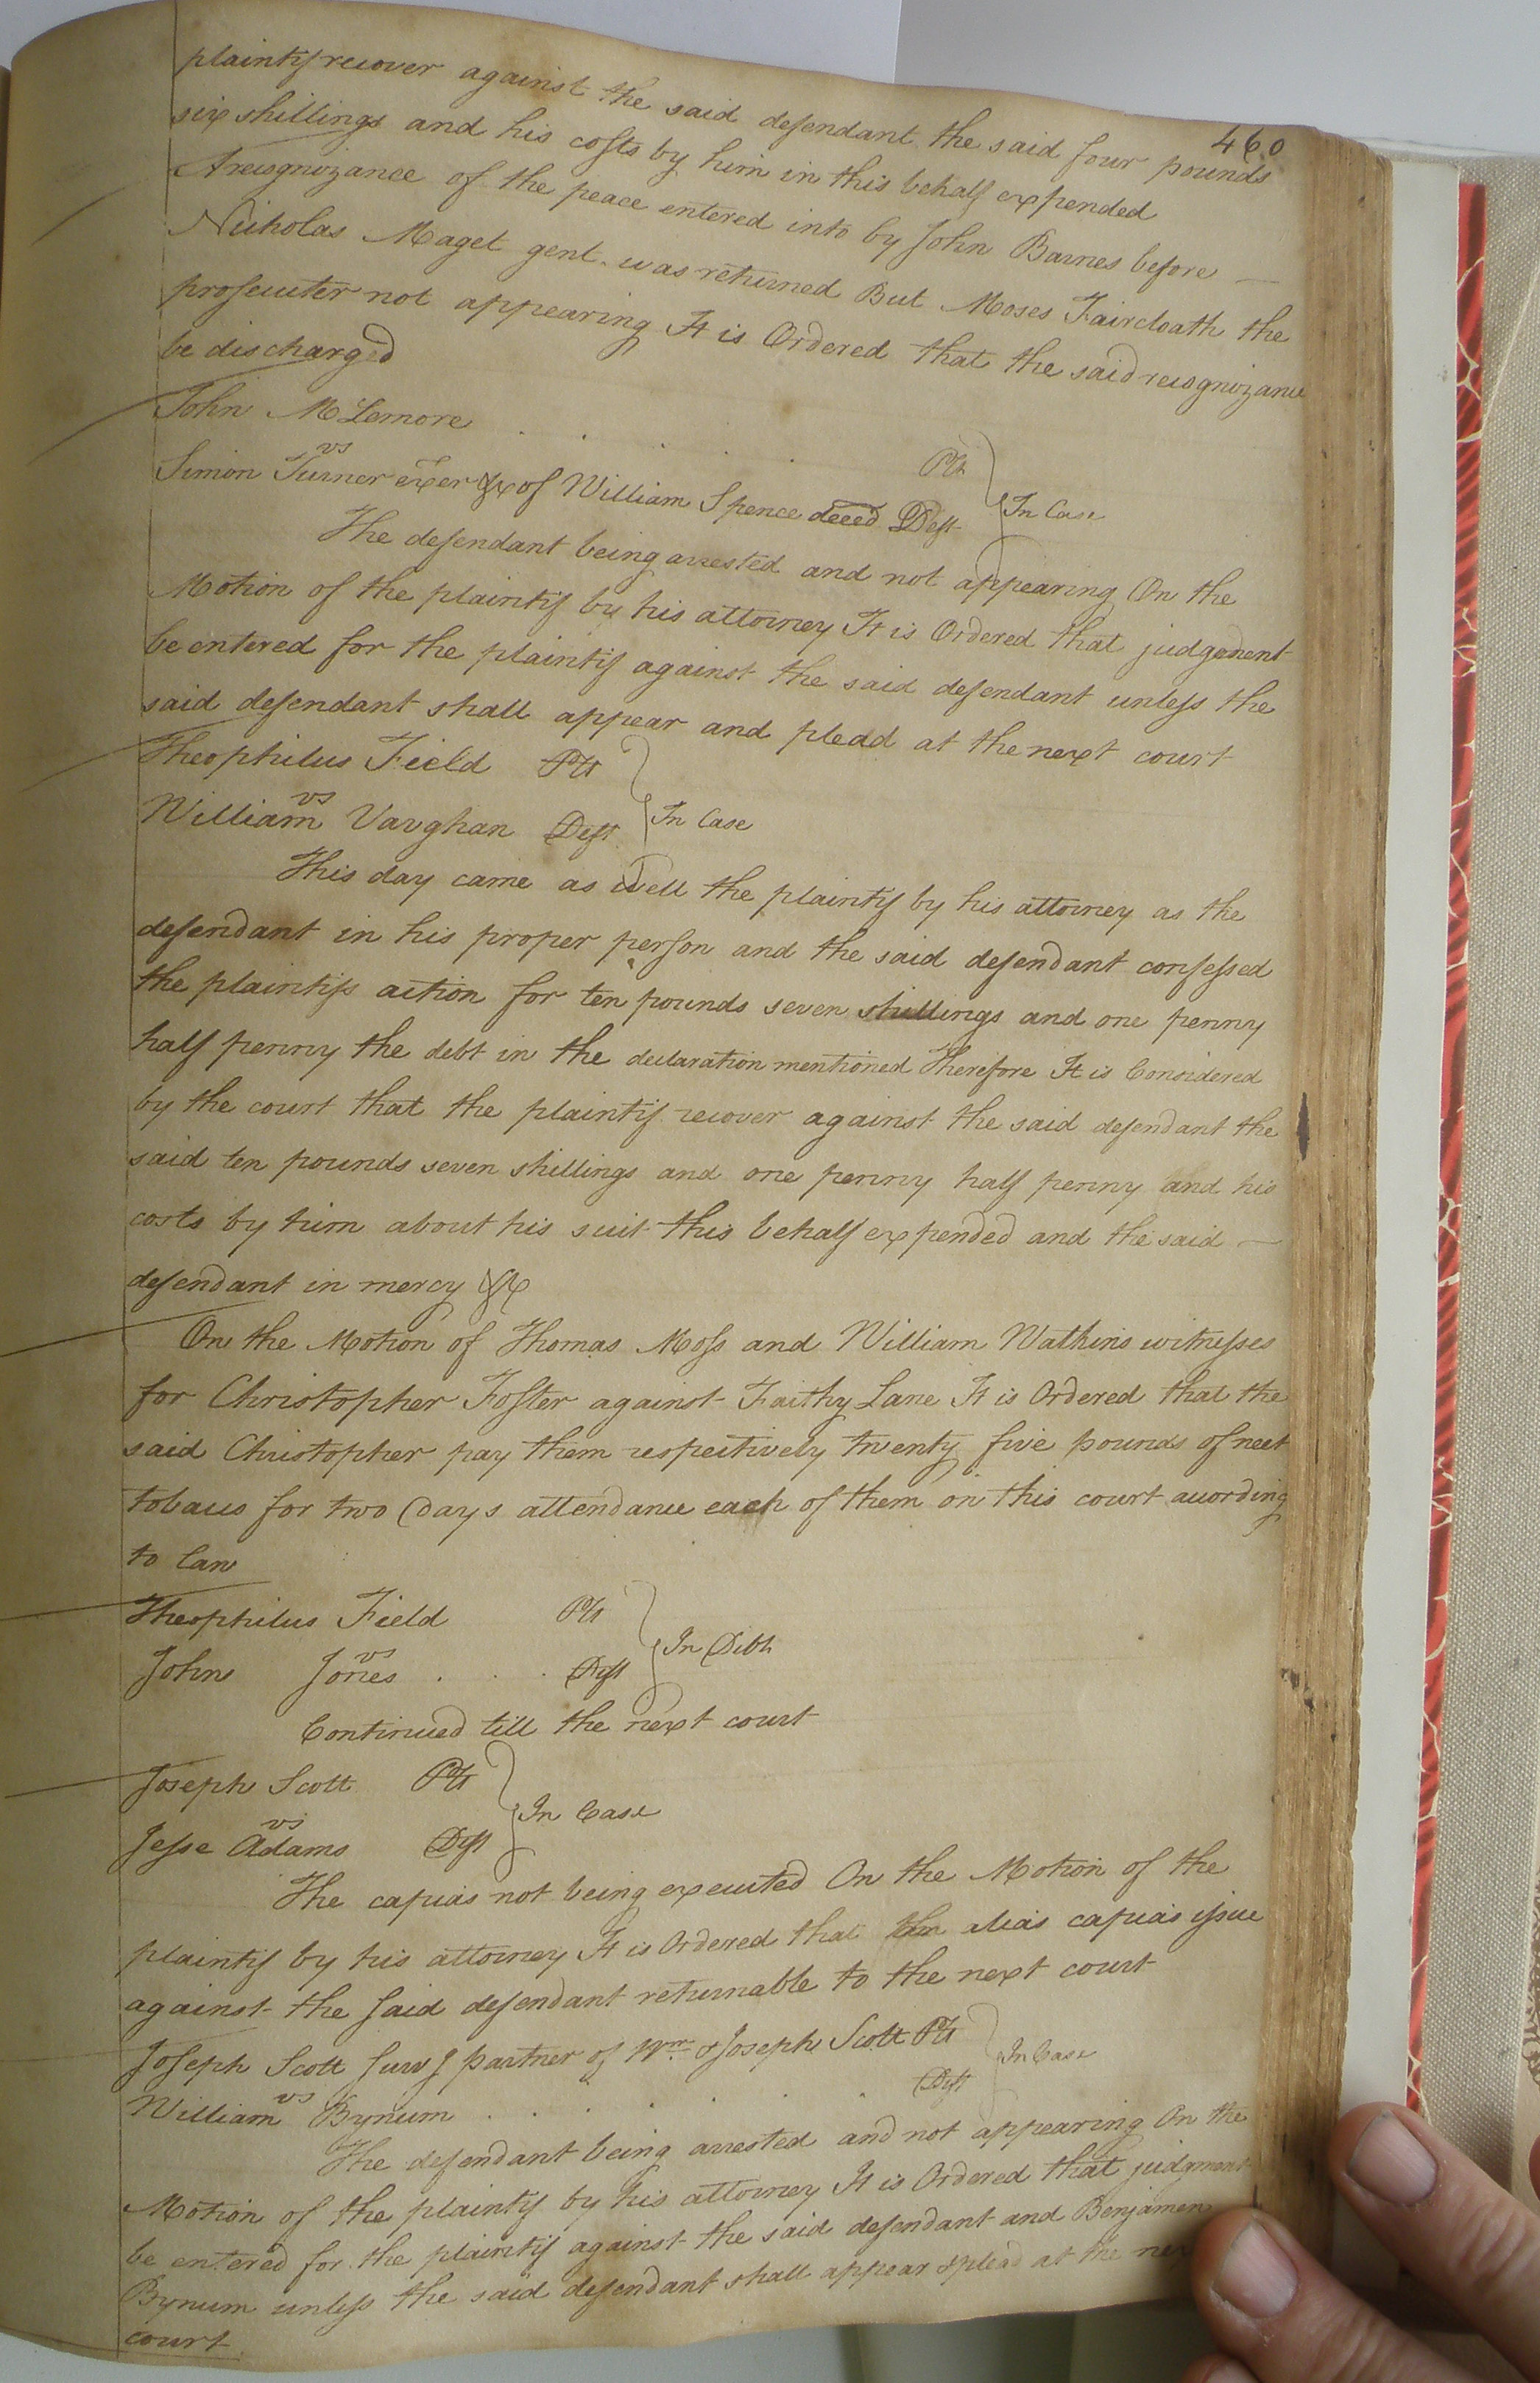 460
plaintif recover against the said defendant the said four pounds
six shillings and his costs by him in this behalf expended
A recognizance of the peace entered into by John Barnes before
Nicholas Maget gent. was returned But Moses Faircloath the
prosecuter not appearing It is Ordered that the said recognizance
be discharged
John McLemore . . . . . Plt
vs
Simon Turner exer &c of William Spence deced Deft
In Case
The defendant being arrested and not appearing On the
Motion of the plaintif by his attorney It is Ordered that judgement
be entered for the plaintif against the said defendant unless the
said defendant shall appear and plead at the next court
Theophilus Field Plt
vs
In Case
William Vaughan Deft
This day came as well the plaintif by his attorney as the
defendant in his proper person and the said defendant confessed
the plaintifs action for ten pounds seven shillings and one penny
half penny the debt in the declaration mentioned Therefore It is Considered
by the court that the plaintif recover against the said defendant the
said ten pounds seven shillings and one penny half penny and his
costs by him about his suit this behalf expended and the said
defendant in mercy &c
On the Motion of Thomas Moss and William Watkins witnesses
for Christopher Foster against Faithy Lane It is Ordered that the
said Christopher pay them respectively twenty five pounds of neet
tobacco for two days attendance each of them on this court according
to law
Theophilus Field Plt
vs
In Debt
John Jones . . . Deft
Continued till the next court
Joseph Scott Plt
vs
In Case
Jesse Adams Deft
The capias not being executed On the Motion of the
plaintif by his attorney It is Ordered that an alias capias issue
against the said defendant returnable to the next court
Joseph Scott Survg partner of Wm & Joseph Scott Plt
vs
In Case
William Bynum . . . . . . Deft
The defendant being arrested and not appearing On the
Motion of the plaintif by his attorney It is Ordered that judgment
be entered for the plaintif against the said defendant and Benjamen
Bynum unless the said defendant shall appear & plead at the
court